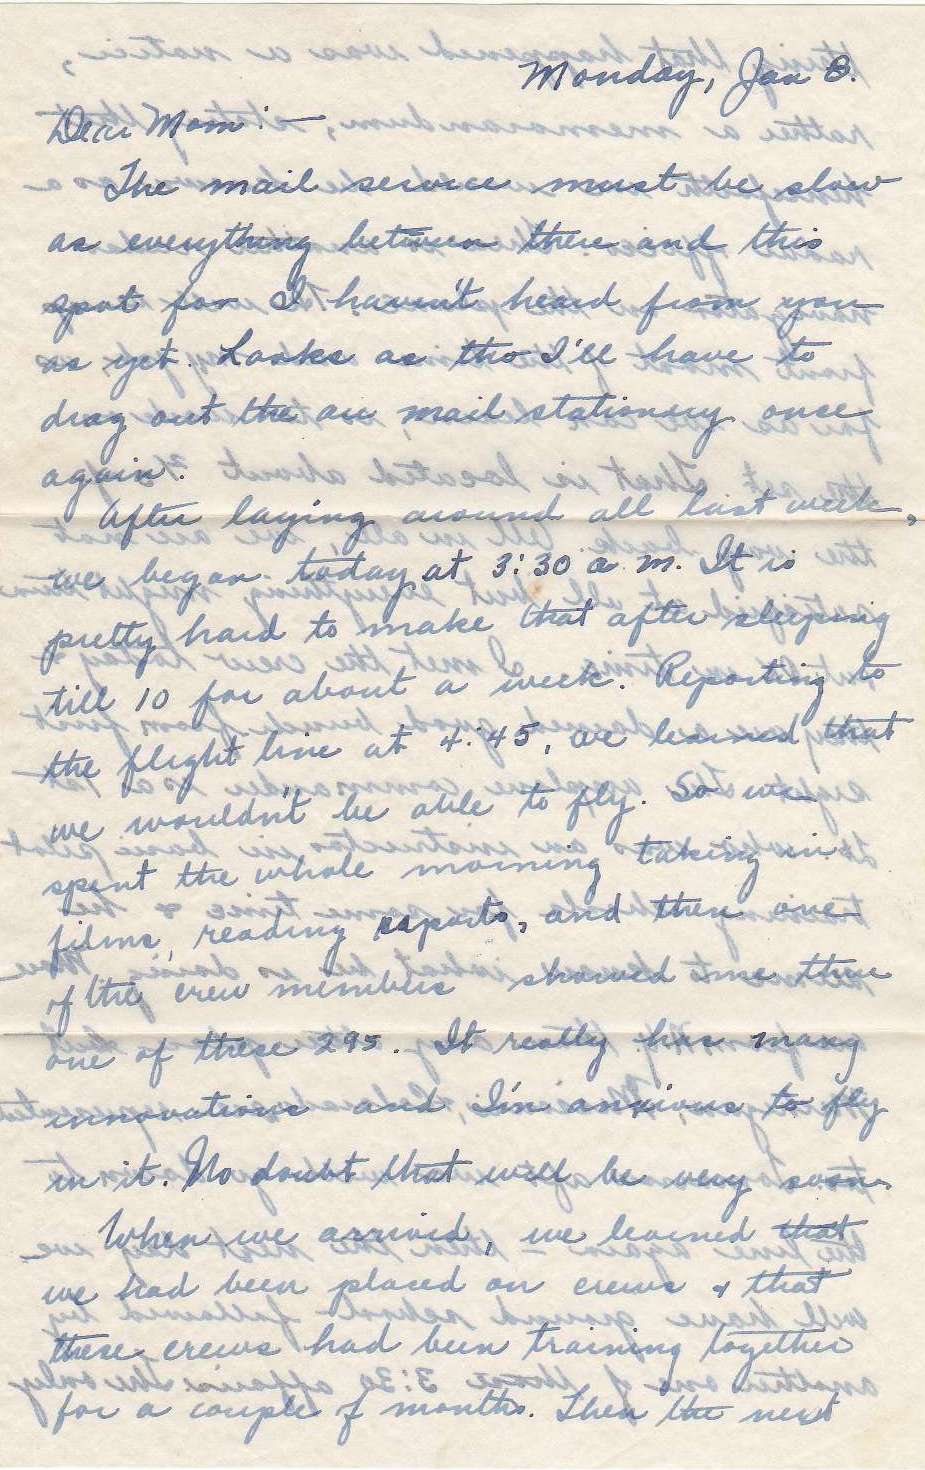 Monday, Jan 8.
Dear Mom: —
The mail service must be slow
as everything between there and this
spot for I haven't heard from you
as yet. Looks as tho I'll have to
drag out the air mail stationery once
again.
After laying around all last week,
we began today at 3:30 a.m. It is
pretty hard to make that after sleeping
till 10 for about a week. Reporting to
the flight line at 4:45, we learned that
we wouldn't be able to fly. So we
spent the whole morning taking in
films, reading reports, and then one
of the crew members showed me thru
one of these 29s. It really has many
innovations and I'm anxious to fly
in it. No doubt that will be very soon.
When we arrived, we learned that
we had been placed on crews & that
these crews had been training together
for a couple of months. Then the next